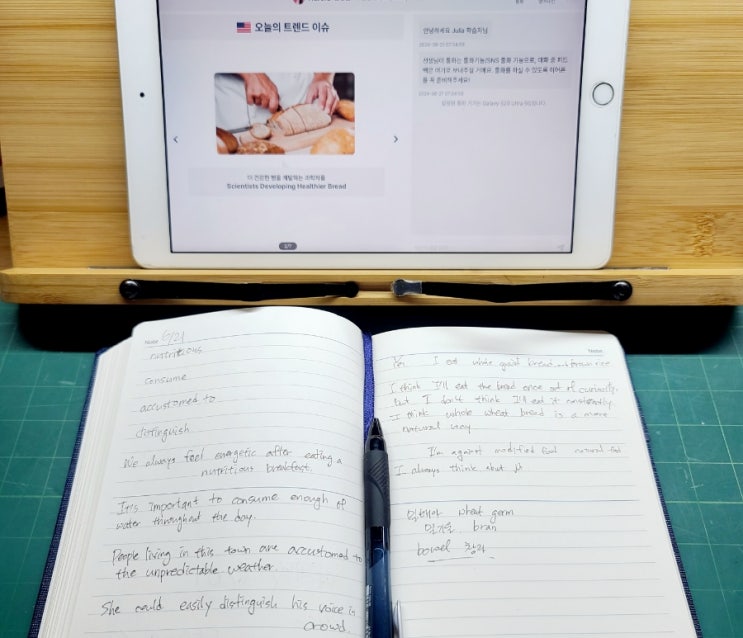 오늘의 트렌드 이슈
더 건강한 빵을 개발하는 과학자들
Scientists Developing Healthier Bread
1/1
안녕하세요 Julia 학습자님
Note 6/21
nutritious
consume
accustomed to
distinguish
We always feel energetic after eating a
nutritious breakfast.
It's important to consume enough of
water throughout the day.
People living in this town are accustomed to
the unpredictable weather.
She could easily distinguish his voice in
crowd.
Note
I eat whole grain bread
I think I'll eat the bread once out of curiosity.
but I don't think I'll eat it constantly.
I think whole wheat bread is a more
natural way.
I'm against modified food natural food
I always think about it
밀배아 wheat germ
밀기울 bran
bowel 창자